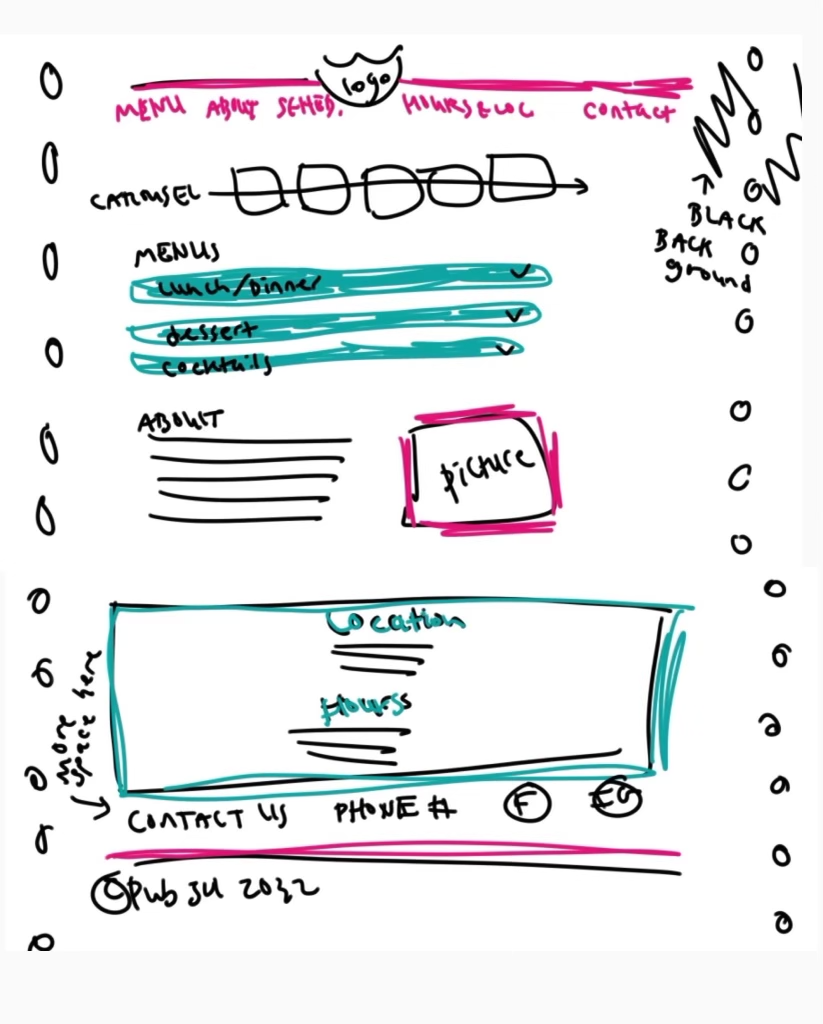 logo
MENU ABOUT SCHED. HOURS & LOC Contact
CAROUSEL
BLACK
BACK
ground
MENUS
Lunch/Dinner
dessert
cocktails
ABOUT
picture
Location
Hours
more
space here
CONTACT US PHONE # F
© Pub